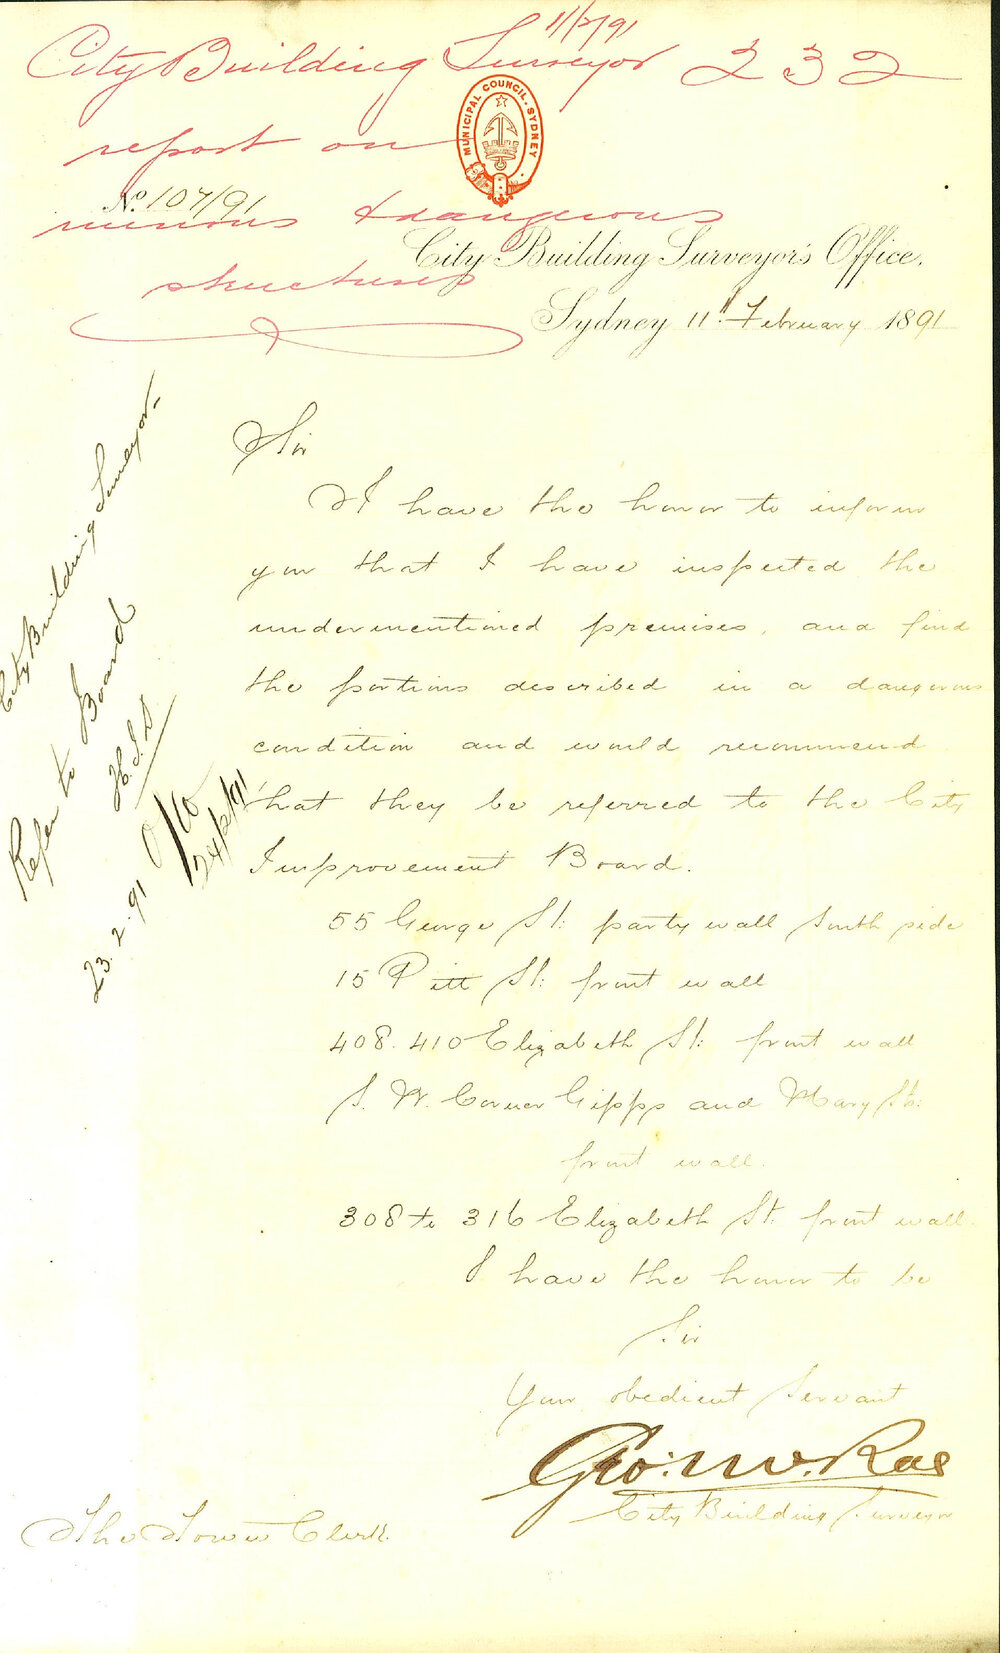 11/2/91
City Building Surveyor 232
report on
ruinous & dangerous
structures
MUNICIPAL COUNCIL. SYDNEY
No. 107/91
City Building Surveyor's Office,
Sydney 11th February 1891
Sir
I have the honor to inform
you that I have inspected the
undermentioned premises, and find
the portions described in a dangerous
condition and would recommend
that they be referred to the City
Improvement Board.
55 George St: party wall South side
15 Pitt St: front wall
408. 410 Elizabeth St: front wall
S. W. Corner Gipps and Mary Sts:
front wall.
308 to 316 Elizabeth St. front wall.
I have the honor to be
Sir
Your obedient Servant
Geo: McRae
City Building Surveyor
The Town Clerk.
City Building Surveyor.
Refer to Board
H.S.D
23.2.91
24/2/91